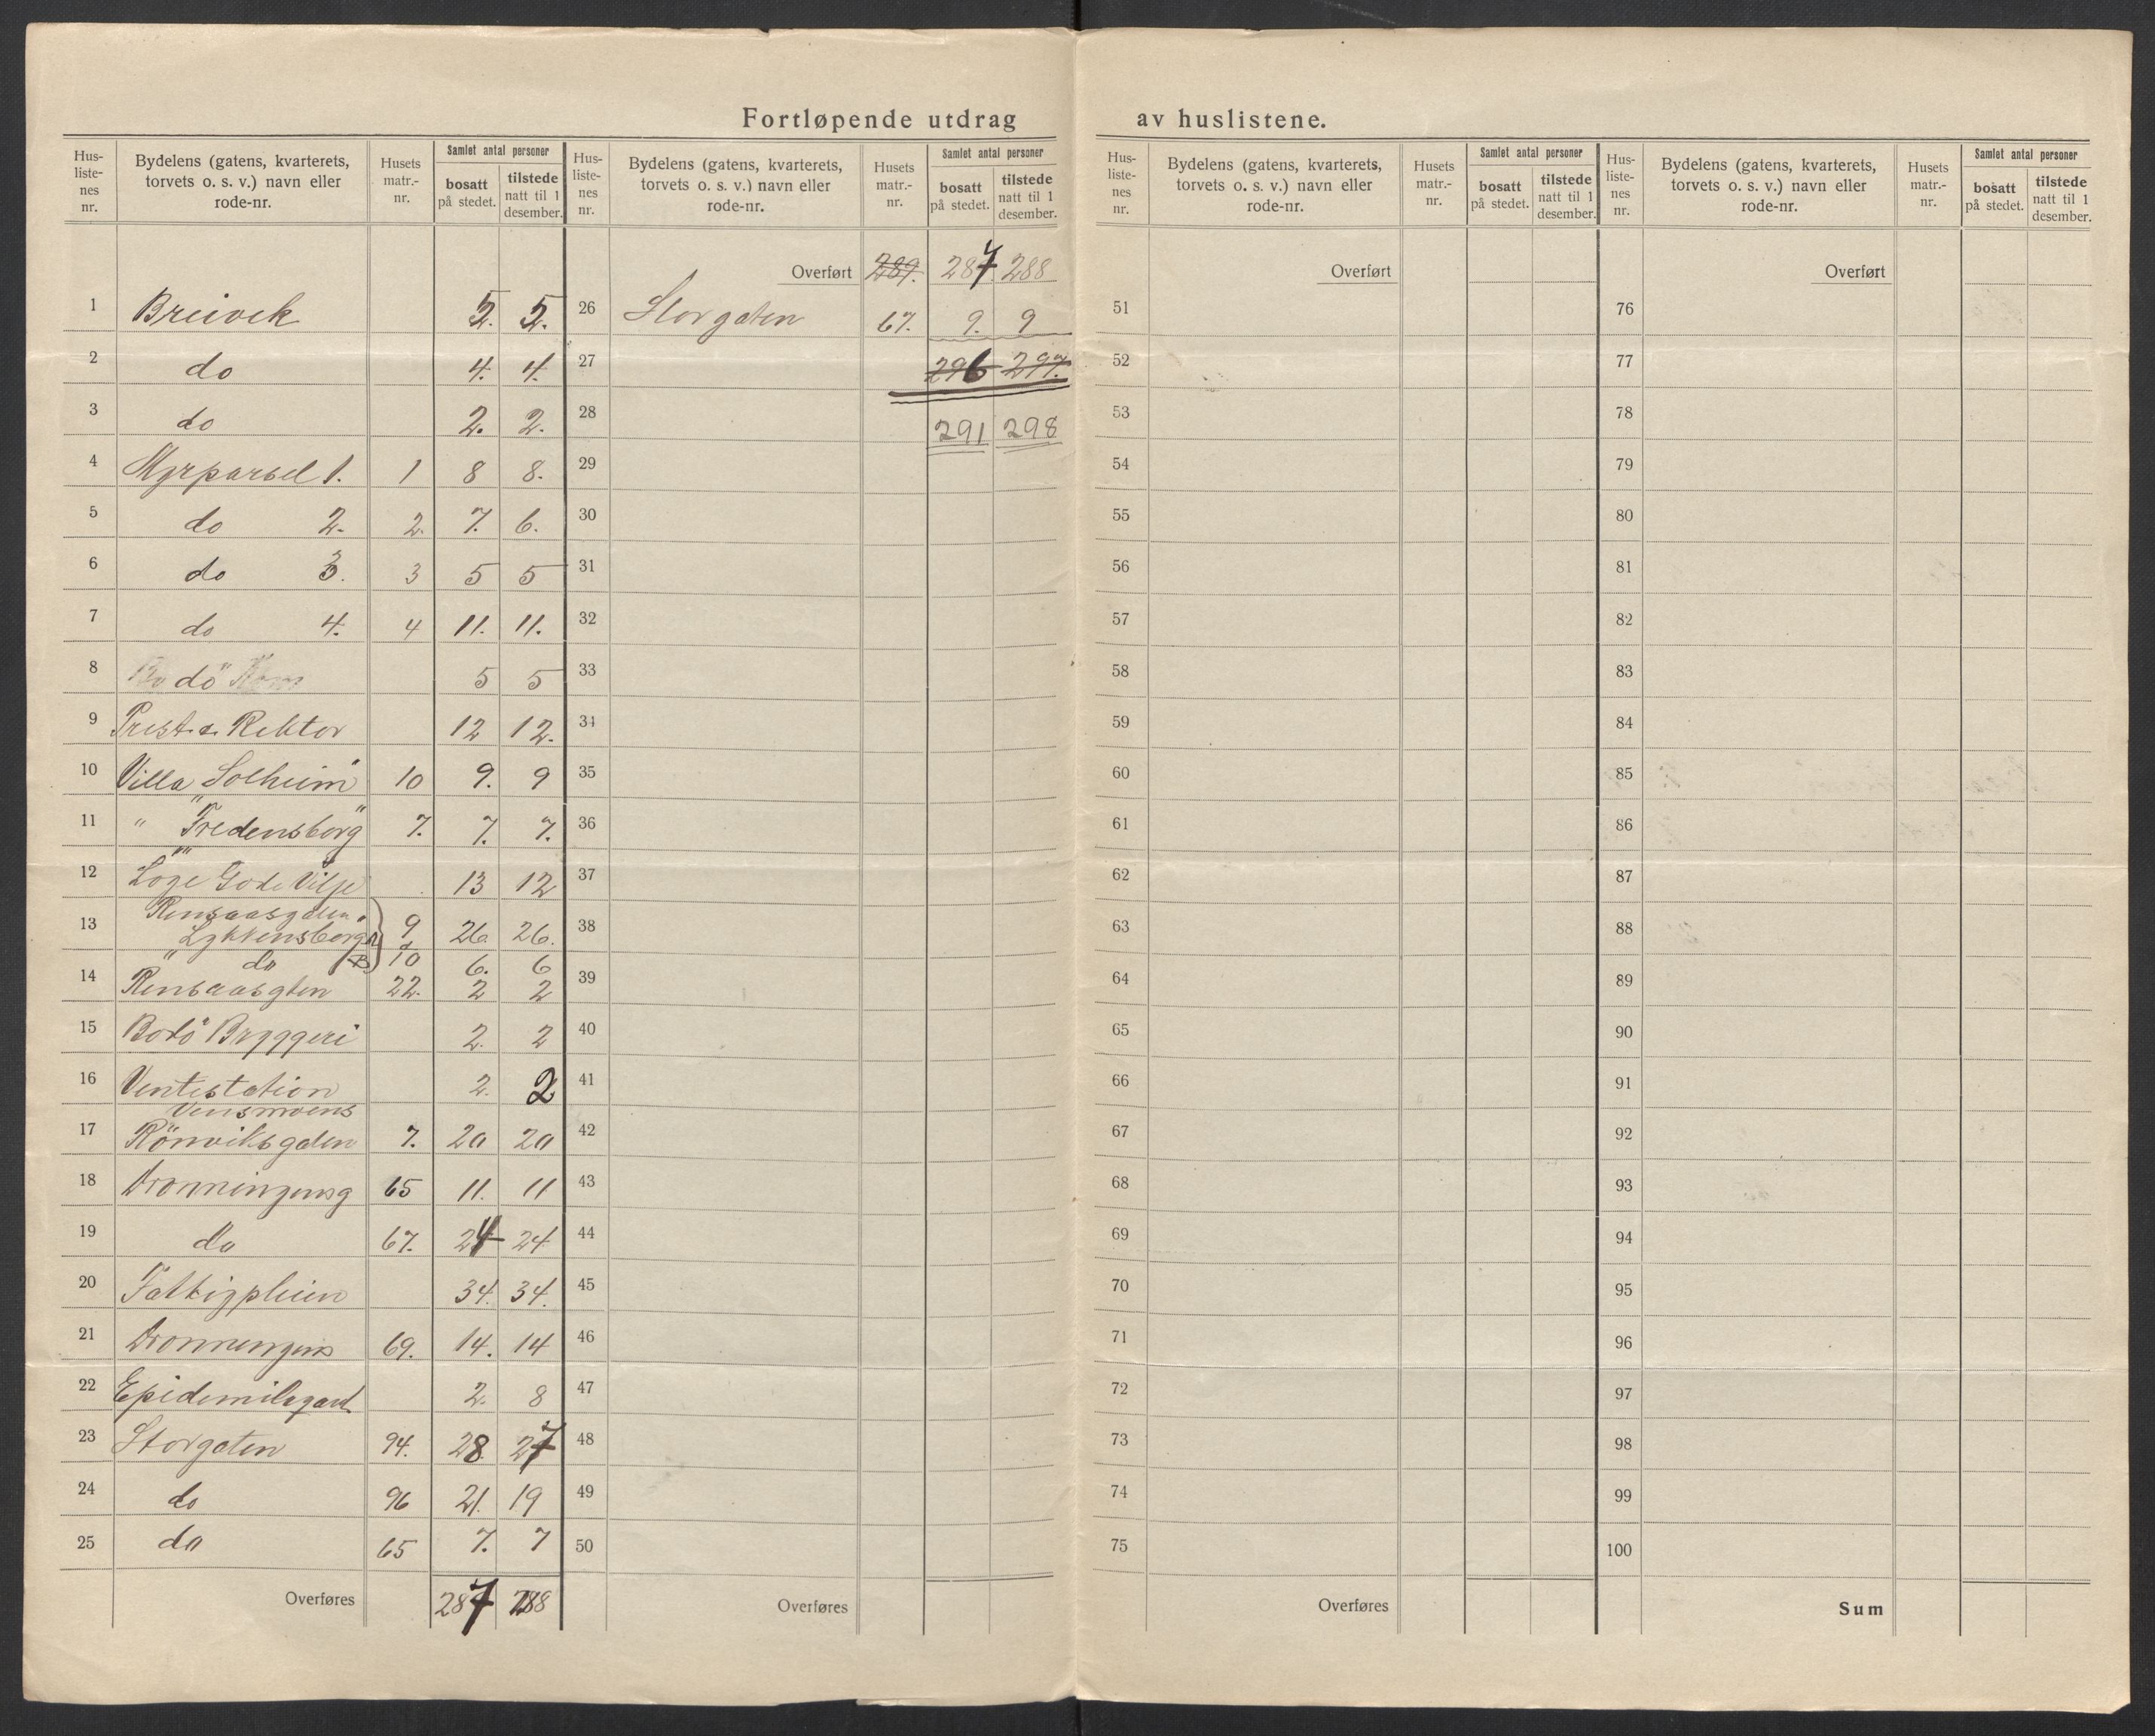 Fortløpende utdrag av huslistene.
Hus-liste-nes nr. | Bydelens (gatens, kvarterets, torvets o. s. v.) navn eller rode-nr. | Husets matr.-nr. | Samlet antal personer | bosatt på stedet. | tilstede natt til 1 desember.
1 Breivik 5. 5.
2 do 4. 4.
3 do 2. 2.
4 Myrparsel 1. 1 8 8.
5 do 2. 2. 7. 6.
6 do 3. 3 5 5
7 do 4. 4 11. 11.
8 Bodö 5 5
9 Prest. Rektor 12 12.
10 Villa "Solheim" 10 9. 9
11 " "Fredensborg" 7. 7. 7.
12 Loge "Gode Vilje" 13 12
Rensaasgaten
13 "Lykkensborg" 9 26. 26.
" do B 10 6. 6
14 Rensaasgten 22. 2 2
15 Bodö Bryggeri 2. 2
16 Ventestation 2. 2
Vensmoens
17 Rönviksgaten 7. 20 20
18 Dronningensg 65 11. 11
19 do 67. 24 24
20 Fattigpleien 34. 34.
21 Dronningens 69. 14. 14
22 Epidemilsgaard 2. 8
23 Storgaten 94. 28. 27
24 do 96 21. 19
25 do 65 7. 7
Overføres 287 288
Hus-liste-nes nr. | Bydelens (gatens, kvarterets, torvets o. s. v.) navn eller rode-nr. | Husets matr.-nr. | Samlet antal personer | bosatt på stedet. | tilstede natt til 1 desember.
Overført 289. 287 288
26 Storgaten 67. 9. 9
27 296 297.
28 291 298
29
30
31
32
33
34
35
36
37
38
39
40
41
42
43
44
45
46
47
48
49
50
Overføres
Hus-liste-nes nr. | Bydelens (gatens, kvarterets, torvets o. s. v.) navn eller rode-nr. | Husets matr.-nr. | Samlet antal personer | bosatt på stedet. | tilstede natt til 1 desember.
Overført
51
52
53
54
55
56
57
58
59
60
61
62
63
64
65
66
67
68
69
70
71
72
73
74
75
Overføres
Hus-liste-nes nr. | Bydelens (gatens, kvarterets, torvets o. s. v.) navn eller rode-nr. | Husets matr.-nr. | Samlet antal personer | bosatt på stedet. | tilstede natt til 1 desember.
Overført
76
77
78
79
80
81
82
83
84
85
86
87
88
89
90
91
92
93
94
95
96
97
98
99
100
Sum